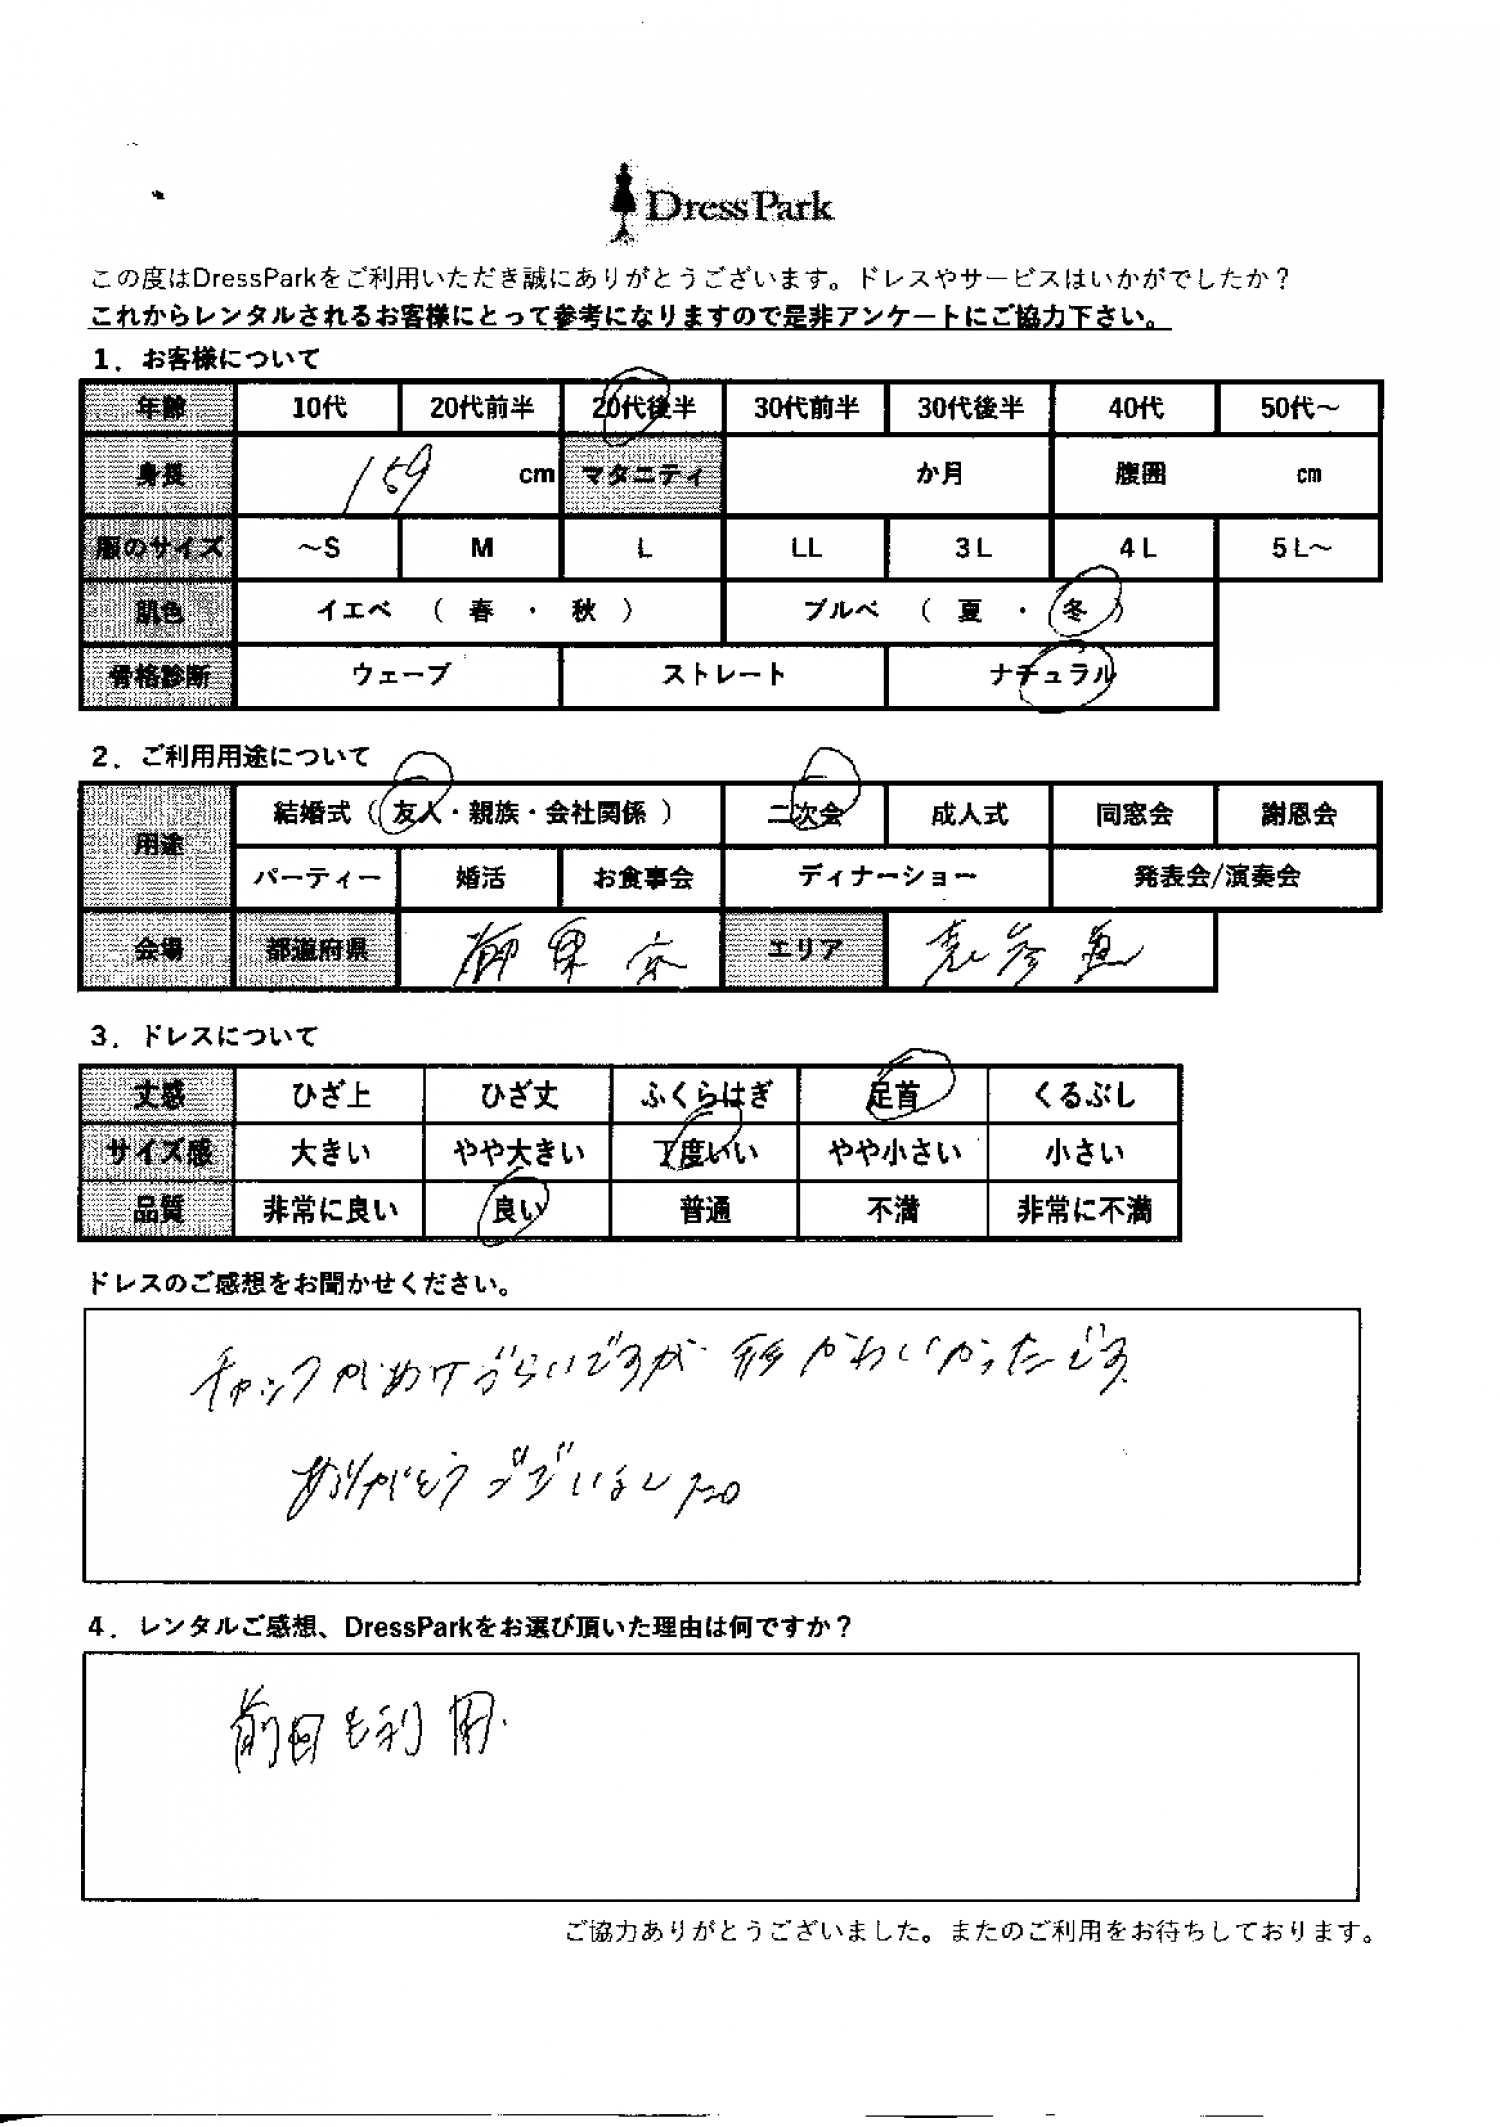 DressPark
この度はDressParkをご利用いただき誠にありがとうございます。ドレスやサービスはいかがでしたか？
これからレンタルされるお客様にとって参考になりますので是非アンケートにご協力下さい。
1．お客様について
年齢 10代 20代前半 20代後半 30代前半 30代後半 40代 50代～
身長 159 cm マタニティ か月 腹囲 cm
服のサイズ ～S M L LL 3L 4L 5L～
肌色 イエベ （ 春 ・ 秋 ） ブルベ （ 夏 ・ 冬 ）
骨格診断 ウェーブ ストレート ナチュラル
2．ご利用用途について
用途 結婚式（ 友人・親族・会社関係 ） 二次会 成人式 同窓会 謝恩会
パーティー 婚活 お食事会 ディナーショー 発表会/演奏会
会場 都道府県 エリア 表参道
3．ドレスについて
丈感 ひざ上 ひざ丈 ふくらはぎ 足首 くるぶし
サイズ感 大きい やや大きい 丁度いい やや小さい 小さい
品質 非常に良い 良い 普通 不満 非常に不満
ドレスのご感想をお聞かせください。
チャックがあけづらいですが 形かわいかったです
ありがとうございました。
4．レンタルご感想、DressParkをお選び頂いた理由は何ですか？
前回も利用.
ご協力ありがとうございました。またのご利用をお待ちしております。